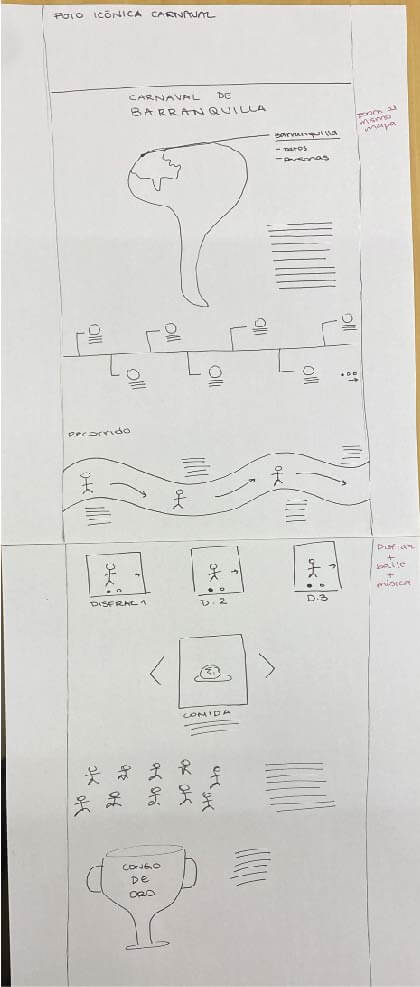 FOTO ICÓNICA CARNAVAL
CARNAVAL DE
BARRANQUILLA
Barranquilla
- DATOS
mismo
mapa
recorrido
DISFRAZ 1
D.2
D.3
+
baile
+
música
COMIDA
CONGO
DE
ORO